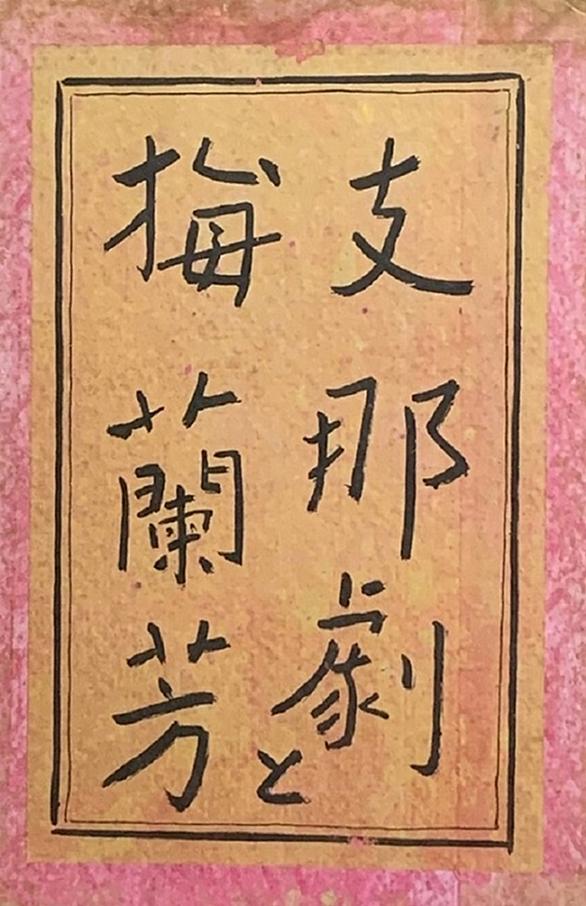 支那劇と
梅蘭芳